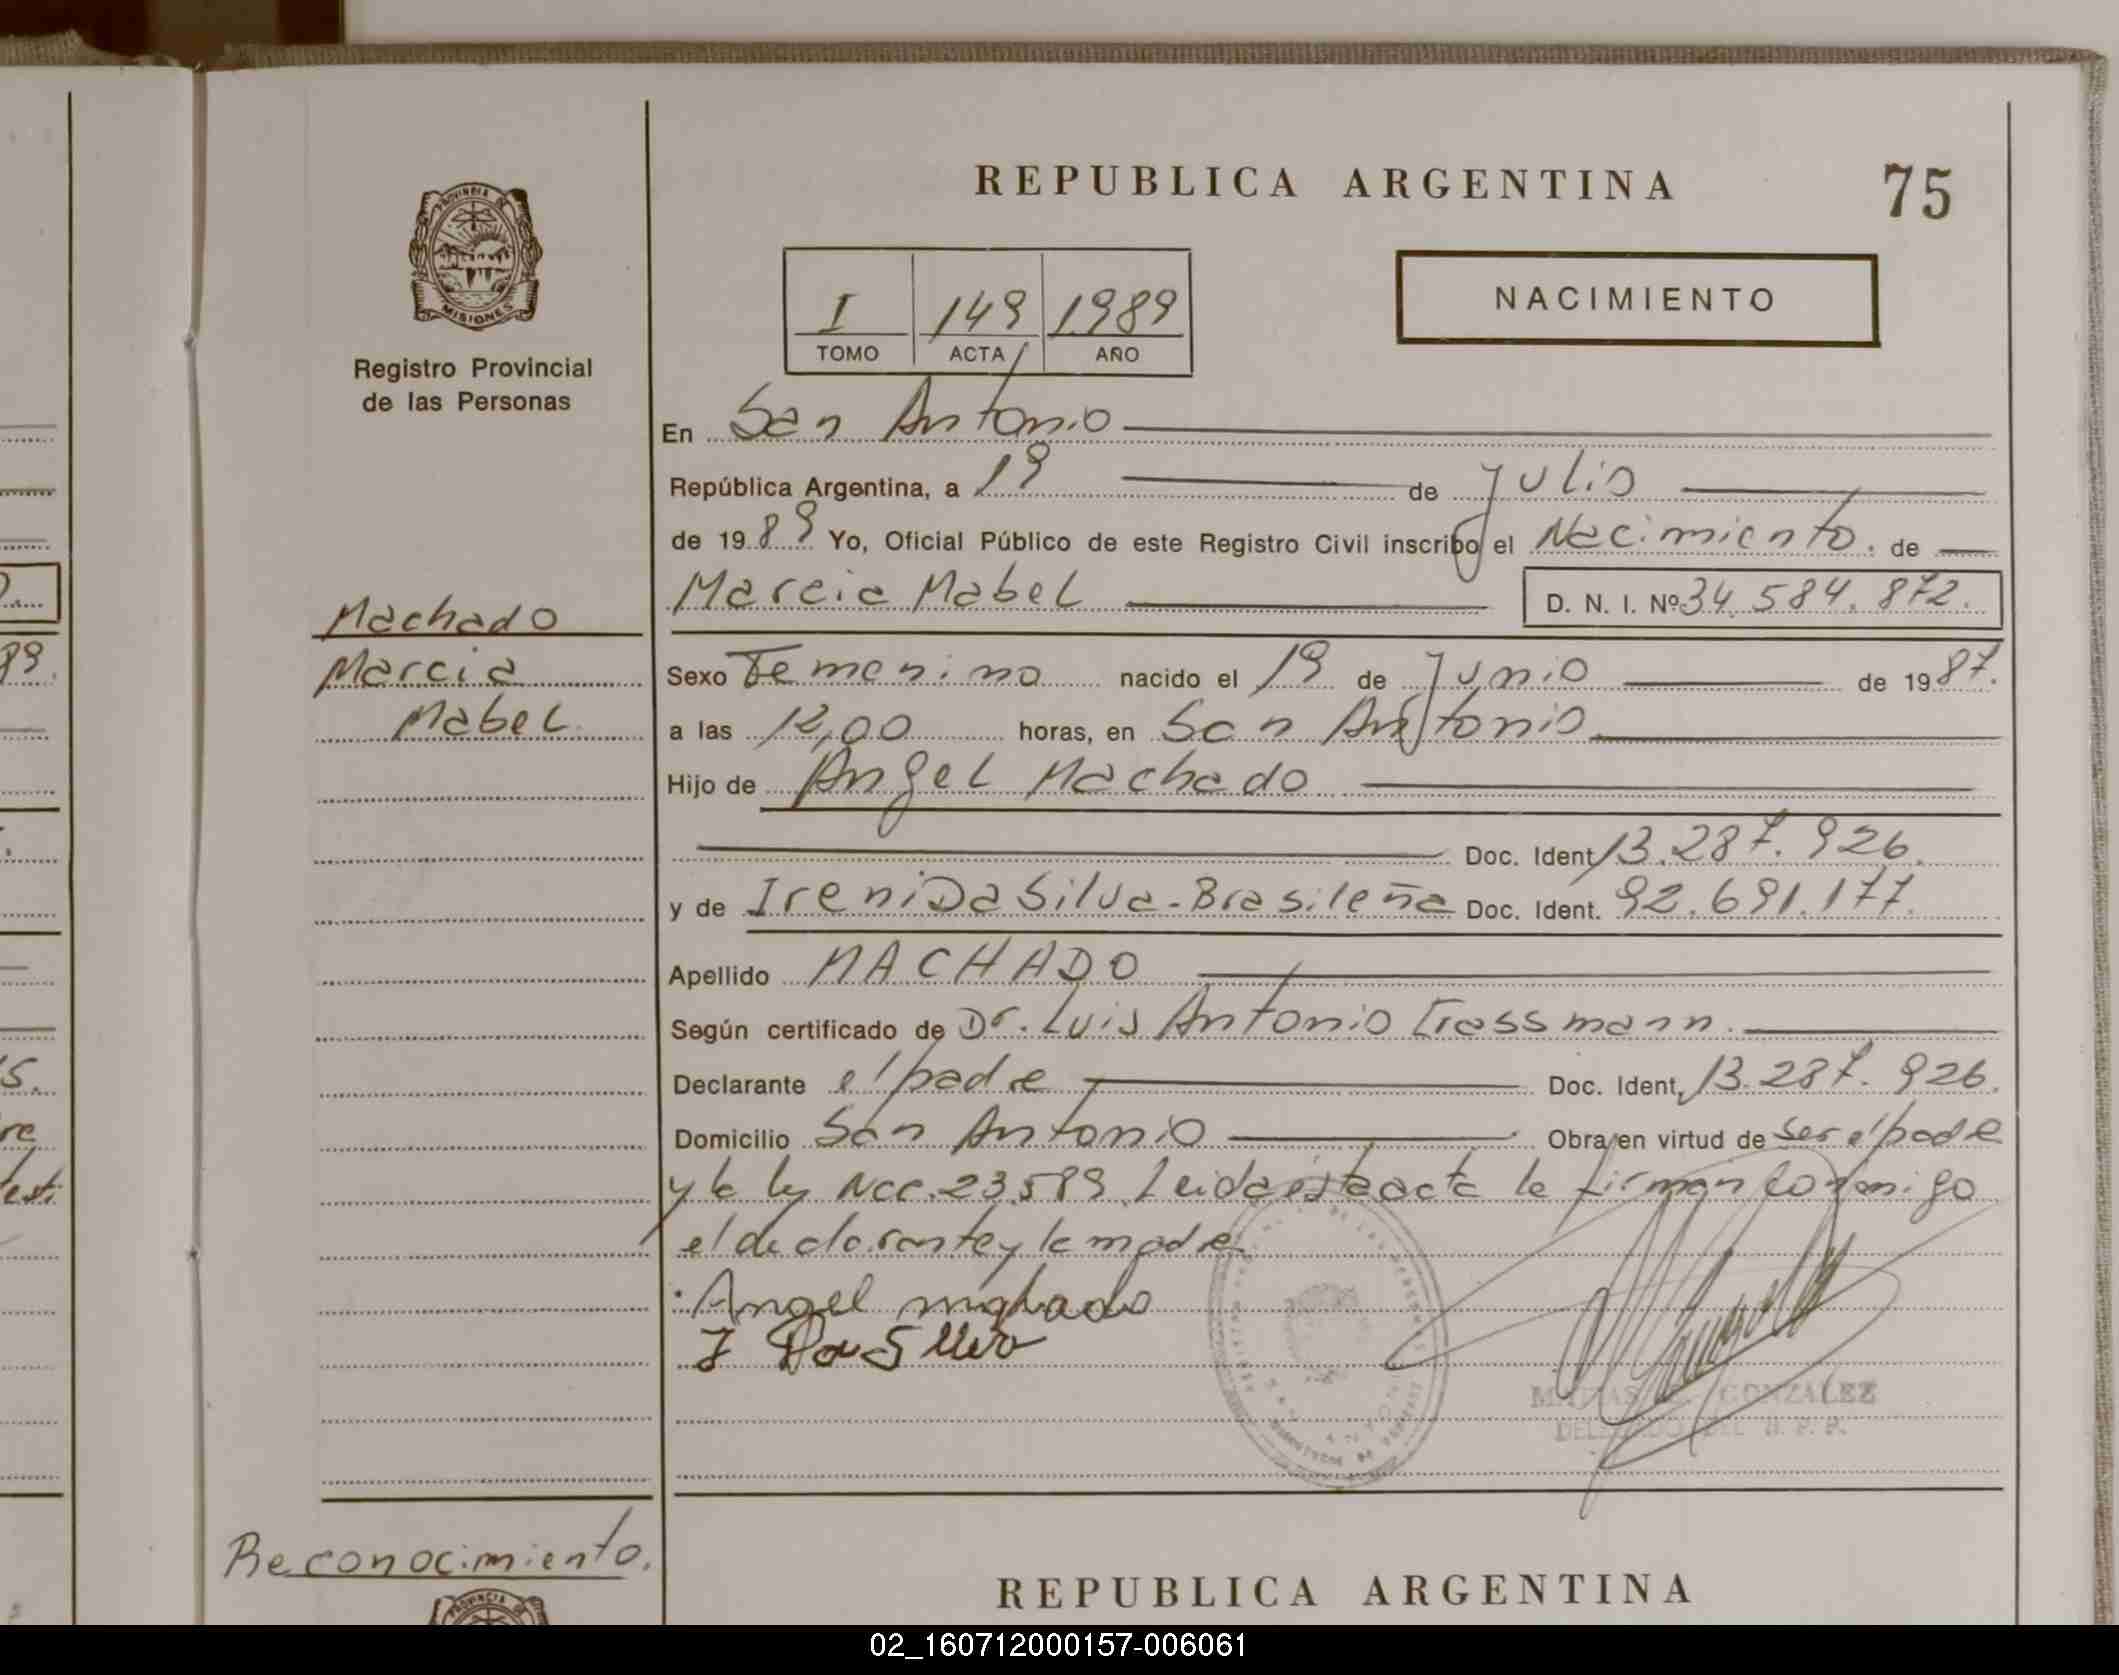 REPUBLICA ARGENTINA
75
PROVINCIA DE
MISIONES
Registro Provincial
de las Personas
I 149 1989
TOMO ACTA AÑO
NACIMIENTO
En San Antonio
República Argentina, a 19 de Julio
de 1989 Yo, Oficial Público de este Registro Civil inscribo el Nacimiento. de
Marcia Mabel D. N. I. Nº 34.584.872.
Machado
Marcia
Mabel
Sexo Femenino nacido el 19 de Junio de 1987.
a las 12,00 horas, en San Antonio
Hijo de Angel Machado
Doc. Ident. 13.287.926.
y de Ireni Da Silva - Brasileña Doc. Ident. 92.691.177.
Apellido MACHADO
Según certificado de Dr. Luis Antonio
Declarante el padre Doc. Ident. 13.287.926.
Domicilio San Antonio Obra en virtud de ser el padre
y la ley Nac. 23.589 Leida esta acta la firman conmigo
el declarante y la madre
Angel machado
I Da Silva
GONZALEZ
DELEGADO DEL R. P. P.
Reconocimiento.
REPUBLICA ARGENTINA
02_160712000157-006061